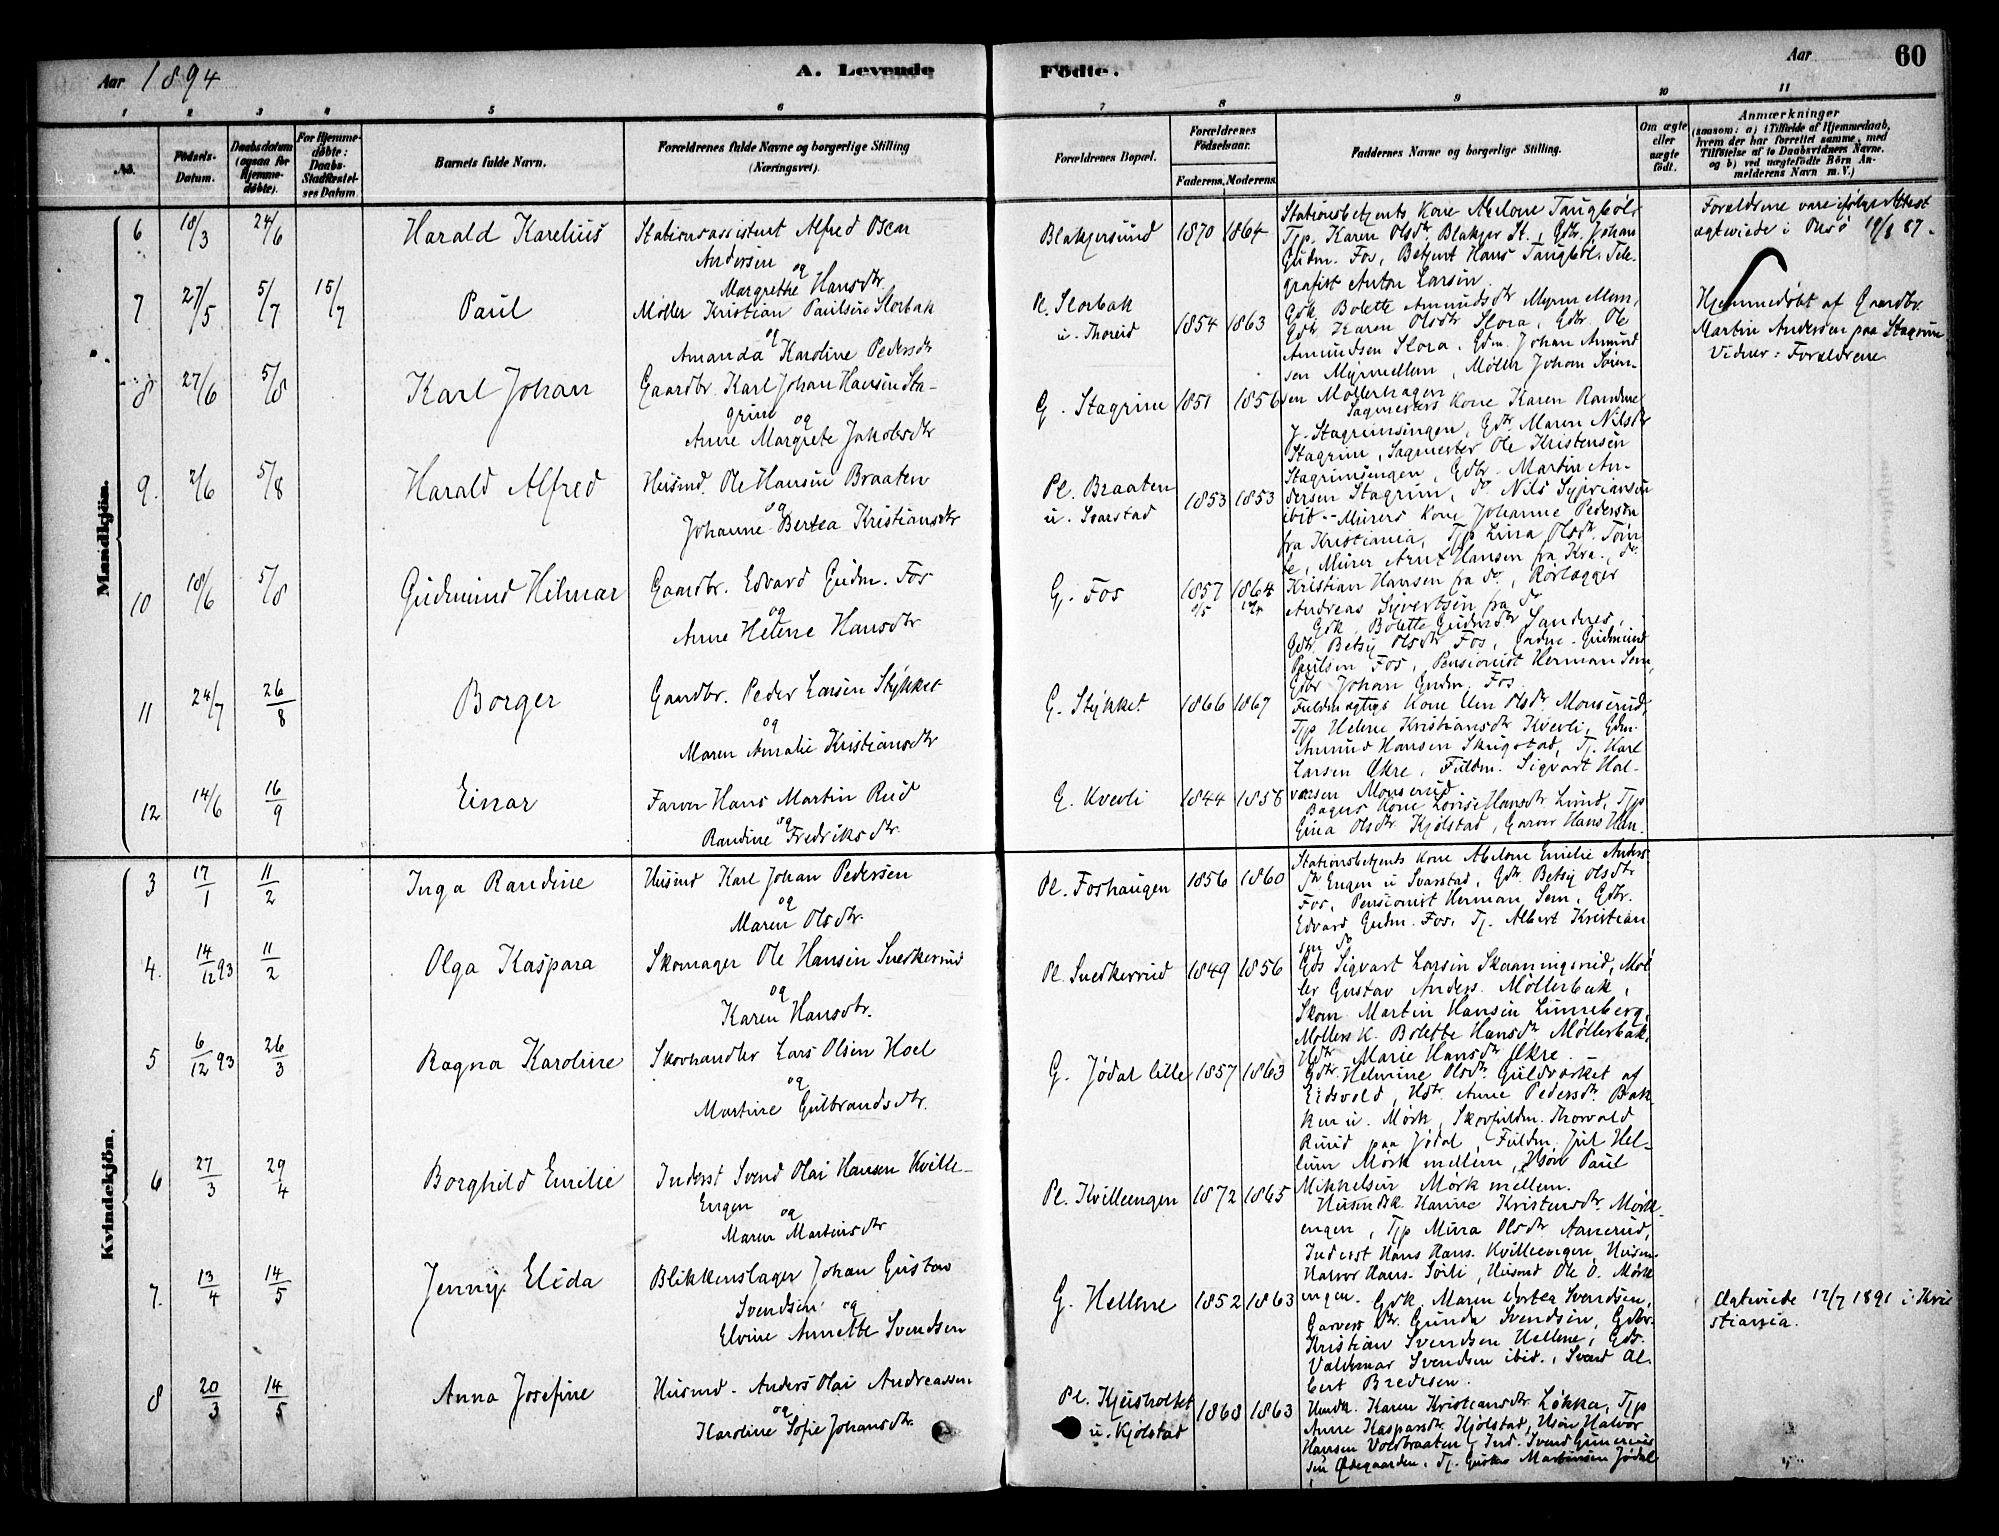 Aar 1894
A. Levende
Födte.
Aar
60
1 2 3 4 5 6 7 8 9 10 11
No.
Födsels-Datum.
Daabsdatum (ogsaa for Hjemme-döbte).
For Hjemme-döbte: Daabs-Stadfæstel-ses Datum
Barnets fulde Navn.
Forældrenes fulde Navne og borgerlige Stilling (Næringsvei).
Forældrenes Bopæl.
Forældrenes Födselsaar.
Faderens. Moderens.
Faddernes Navne og borgerlige Stilling.
Om ægte eller uægte födt.
Anmærkninger
(saasom: a) i Tilfælde af Hjemmedaab, hvem der har forrettet samme, med Tilföielse af to Daabsvidners Navne. og b) ved uægtefödte Börn Anmelderens Navn m. V.)
Mandkjön.
6 18/3 24/6 Harald Karelius
Stationsassistent Alfred Oscar
Andersen
og
Margrethe Hansdtr
Blakjersund 1870 1864
Stationsbetjents Kone Abelone Tangbøl,
Tjp. Karen Olsdtr Blakjer St., Gdbr. Johan
Gudm. Fos, Betjent Hans Tangbøl, Tele-
grafist Anton Larsen
Forældrene vare ifølge Attest
ægteviede i Onsø 19/8 87.
7 27/5 5/7 15/7 Paul
Møller Kristian Paulsen Slorbak
og
Amanda Karoline Pedersdtr
Pl. Slorbak
u. Thoreid
1854 1863
Gdk. Bolette Amundsdtr Myrer Mem,
Gdtr Karen Olsdtr Slora, Gdbr Ole
Amundsen Slora, Gdm. Johan Amund
sen Myrmellem, Møller Johan Sören-
sen Møllerhagen
Hjemmedøbt af Gaardbr.
Martin Andersen paa Stagrim
Vidner: Forældrene
8 27/6 5/8 Karl Johan
Gaardbr. Karl Johan Hansen Sta-
grim
og
Anne Margrete Jakobsdtr
G. Stagrim 1851 1856
Sagmesters Kone Karen Randine
J. Stagrimsengen, Gdtr. Maren Nilsdtr
Stagrim, Sagmester Ole Kristensen
Stagrimsengen, Gdbr. Martin An-
dersen Stagrim, do Nils Syprianson
ibid.
9. 2/6 5/8 Harald Alfred
Husmd. Ole Hansen Braaten
og
Johanne Bertea Kristiansdtr
Pl. Braaten
u. Svarstad
1853 1853
Murers Kone Johanne Pedersen
fra Kristiania, Tjp Lina Olsdtr. Tøin
te, Murer Arnt Hansen fra Kra., do
Kristian Hansen fra do, Rørlægger
Andreas Syvertsen fra do
10 18/6 5/8 Gudmund Hilmar
Gaardbr. Edvard Gudm. Fos
og
Anne Helene Hansdtr
G. Fos 1857 1864
Gdk. Bolette Gudmdtr Sandnes,
Gdtr. Betsy Olsdtr Fos, Gudm. Gudmund
Paulsen Fos, Pensionist Herman Sem,
Gdbr Johan Gudm. Fos
11 24/7 26/8 Borger
Gaardbr. Peder Larsen Stykket
og
Maren Amalie Kristiansdtr
G. Stykket 1866 1867
Fuldmægtigs Kone Elen Olsdtr. Monserud,
Tjp Helene Kristiansdtr Kvevli, Gdm.
Amund Hansen Skugstad, Tj. Karl
Larsen Økre, Fuldm. Sigvart Hal-
vorsen Monserud
12 14/6 16/9 Einar
Farver Hans Martin Rud
og
Randine Fredriksdtr.
G. Kvevli 1844 1856
Bagers Kone Lovise Hansdtr Lund, Tjp
Gina Olsdtr Kjølstad, Garver Hans Han-
Kvindekjön.
3 17/1 11/2 Inga Randine
Husmd Karl Johan Pedersen
og
Maren Olsdtr.
Pl. Foshaugen 1856 1860
Stationsbetjents Kone Abelone Emilie Anders-
dtr Engen u Svarstad, Gdtr. Betsy Olsdtr
Fos, Pensionist Herman Sem, Gdbr.
Edvard Gudm. Fos, Tj. Albert Kristian
sen do
4. 14/12 93 11/2 Olga Kaspara
Skomager Ole Hansen Snedkerrud
og
Karen Hansdtr.
Pl. Snedkerrud 1849 1856
Gds Sigvart Larsen Skaaningsrud, Møl
ler Gustav Anders. Møllerbak,
Skom Martin Hansen Linneberg,
Møllers K. Bolette Hansdtr Møllerbak,
Hdtr. Marie Hansdtr Økre.
5 6/12 93 26/3 Ragna Karoline
Skovhandler Lars Olsen Hoel
og
Martine Gulbrandsdtr.
G. Jødal lille 1857 1863
Gdtr. Helmine Olsdtr. Guldværket af
Eidsvold, Hdtr. Anne Pedersdtr. Bak-
ken u. Mørk, Skovfuldm. Thorvald
Ruud paa Jødal, Fuldm. Jul Hel-
lum Mørk mellem, Hsøn Paul
Mikkelsen Mørk mellem.
6 27/3 29/4 Borghild Emilie
Inderst Svend Olai Hansen Kville-
Engen
og
Maren Martinsdtr
Pl. Kvilleengen 1872 1865
Husmdsk. Hanne Kristensdtr. Mørk-
engen, Tjp Mina Olsdtr Aanerud,
Inderst Hans Hans. Kvilleengen, Husm.
Halvor Hans. Sörli, Husmd Ole O. Mørk
engen.
7. 13/4 14/5 Jenny Elida
Blikkenslager Johan Gustav
Svendsen og
Elvine Annette Svendsen
G. Hellene 1852 1863
Gdk. Maren Dortea Svendsen,
Garvers Dtr. Gunda Svendsen, Gdbr.
Kristian Svendsen Hellene, Gds.
Valdemar Svendsen ibid., Svend Al-
bert Bredesen.
Ægteviede 12/7 1891 i Kri
stiania.
8 20/3 14/5 Anna Josefine
Husmd. Anders Olai Andreassen
og
Karoline Sofie Johansdtr.
Pl. Kjeisholtet
u. Kjølstad
1863 1863
Hmdk. Karen Kristiansdtr. Løkka, Tjp
Anne Kaspersdtr. Kjølstad, Hsøn Halvor
Hansen Voldbraaten, Ind. Svend Gunerius
sen Ødegaarden, Tj. Gustav Martinsen Jødal